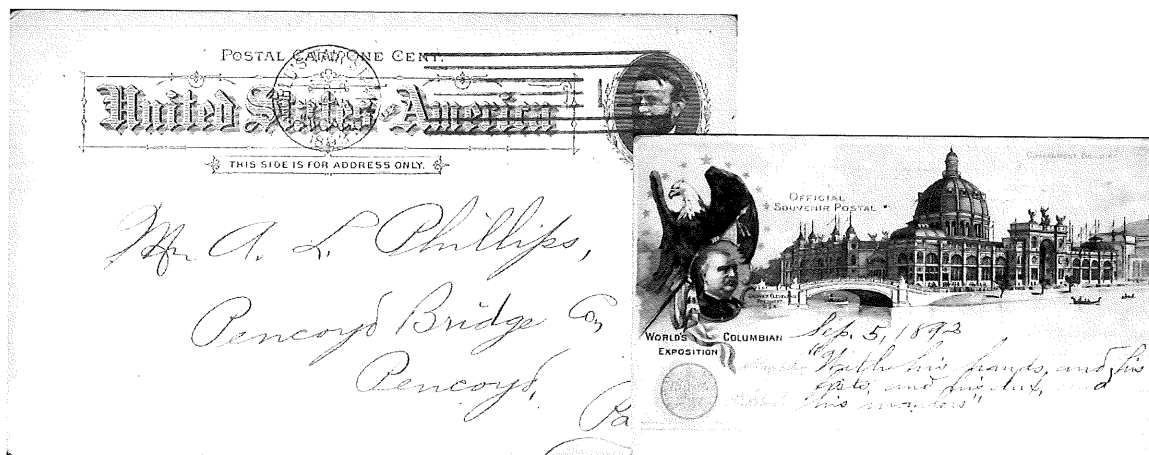 POSTAL CARD ONE CENT.
United States of America
THIS SIDE IS FOR ADDRESS ONLY.
Mr. A. L. Phillips,
Pencoyd Bridge Co,
Pencoyd,
Pa
GOVERNMENT BUILDING
OFFICIAL
SOUVENIR POSTAL
GROVER CLEVELAND
PRESIDENT
WORLD'S COLUMBIAN
EXPOSITION
Sep. 5, 1893
"With his hands, and his
and his and
this